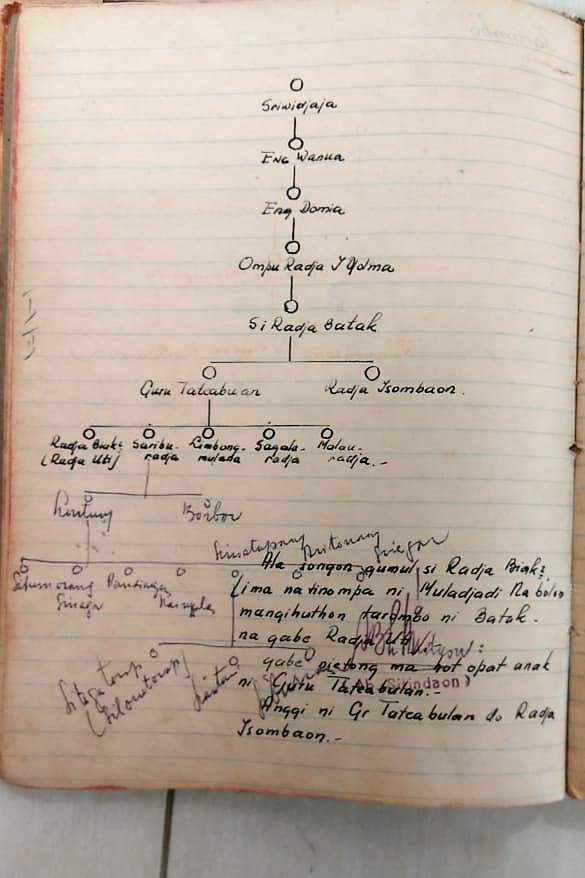 Sriwidjaja
Eng Wanua
Eng Domia
Ompu Radja I
Si Radja Batak
Guru Tateabulan Radja Isombaon.
Radja Biak² Saribu- Limbong- Sagala- Malau-
(Radja Uti) radja mulana radja radja.-
Lontung Borbor
Situmorang Pandiangan
Sinaga Nainggolan
Simatupang Aritonang Siregar
Ala songon gumul si Radja Biak²
ima na tinompa ni Muladjadi Na bolon
mangihuthon tarombo ni Batak.
na gabe Radja Uti
gabe pintong ma hot opat anak
ni Guru Tateabulan.-
Sitindaon)
Anggi ni Gr Tateabulan do Radja
Isombaon.-